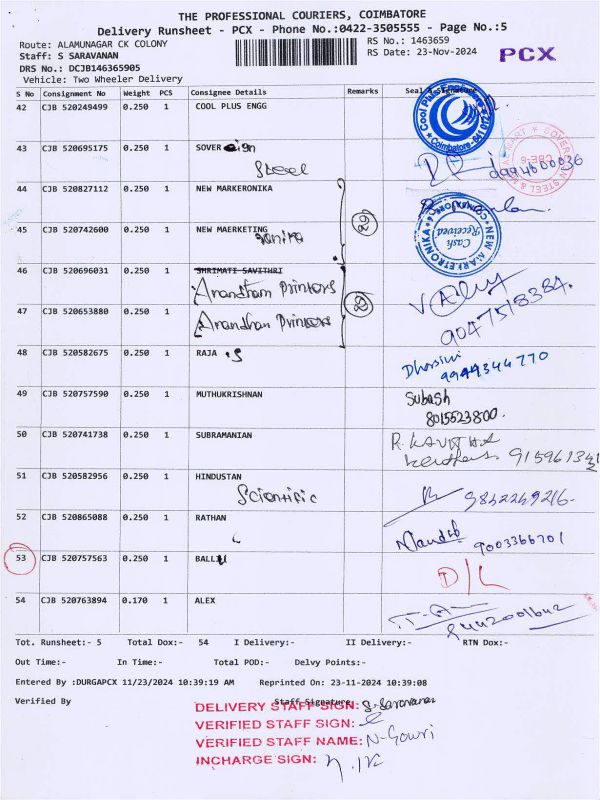 THE PROFESSIONAL COURIERS, COIMBATORE
Delivery Runsheet - PCX - Phone No.:0422-3505555 - Page No.:5
Route: ALAMUNAGAR CK COLONY
RS No.: 1463659
Staff: S SARAVANAN
RS Date: 23-Nov-2024
PCX
DRS No.: DCJB146365905
Vehicle: Two Wheeler Delivery
S No Consignment No Weight PCS Consignee Details Remarks Seal & Signature
42 CJB 520249499 0.250 1 COOL PLUS ENGG
Cool Plus
Coimbatore
43 CJB 520695175 0.250 1 SOVER eign
Steel
44 CJB 520827112 0.250 1 NEW MARKERONIKA
45 CJB 520742600 0.250 1 NEW MAERKETING
NEW MARKETRONIKA
Cash Received
46 CJB 520696031 0.250 1 SHRIMATI SAVITHRI
Anandham Printers
47 CJB 520653880 0.250 1
Anandham Printers
9047518384.
48 CJB 520582675 0.250 1 RAJA .S
Dharsini
9994344770
49 CJB 520757590 0.250 1 MUTHUKRISHNAN
Subash
8015523800.
50 CJB 520741738 0.250 1 SUBRAMANIAN
R. KAVITHA
51 CJB 520582956 0.250 1 HINDUSTAN
Scientific
9842249216-
52 CJB 520865088 0.250 1 RATHAN
9003366701
53 CJB 520757563 0.250 1 BALLU
D/L
54 CJB 520763894 0.170 1 ALEX
Tot. Runsheet:- 5 Total Dox:- 54 I Delivery:- II Delivery:- RTN Dox:-
Out Time:- In Time:- Total POD:- Delvy Points:-
Entered By :DURGAPCX 11/23/2024 10:39:19 AM Reprinted On: 23-11-2024 10:39:08
Verified By Staff Signature
DELIVERY STAFF SIGN: S. Saravanan
VERIFIED STAFF SIGN:
VERIFIED STAFF NAME: N. Gowri
INCHARGE SIGN: